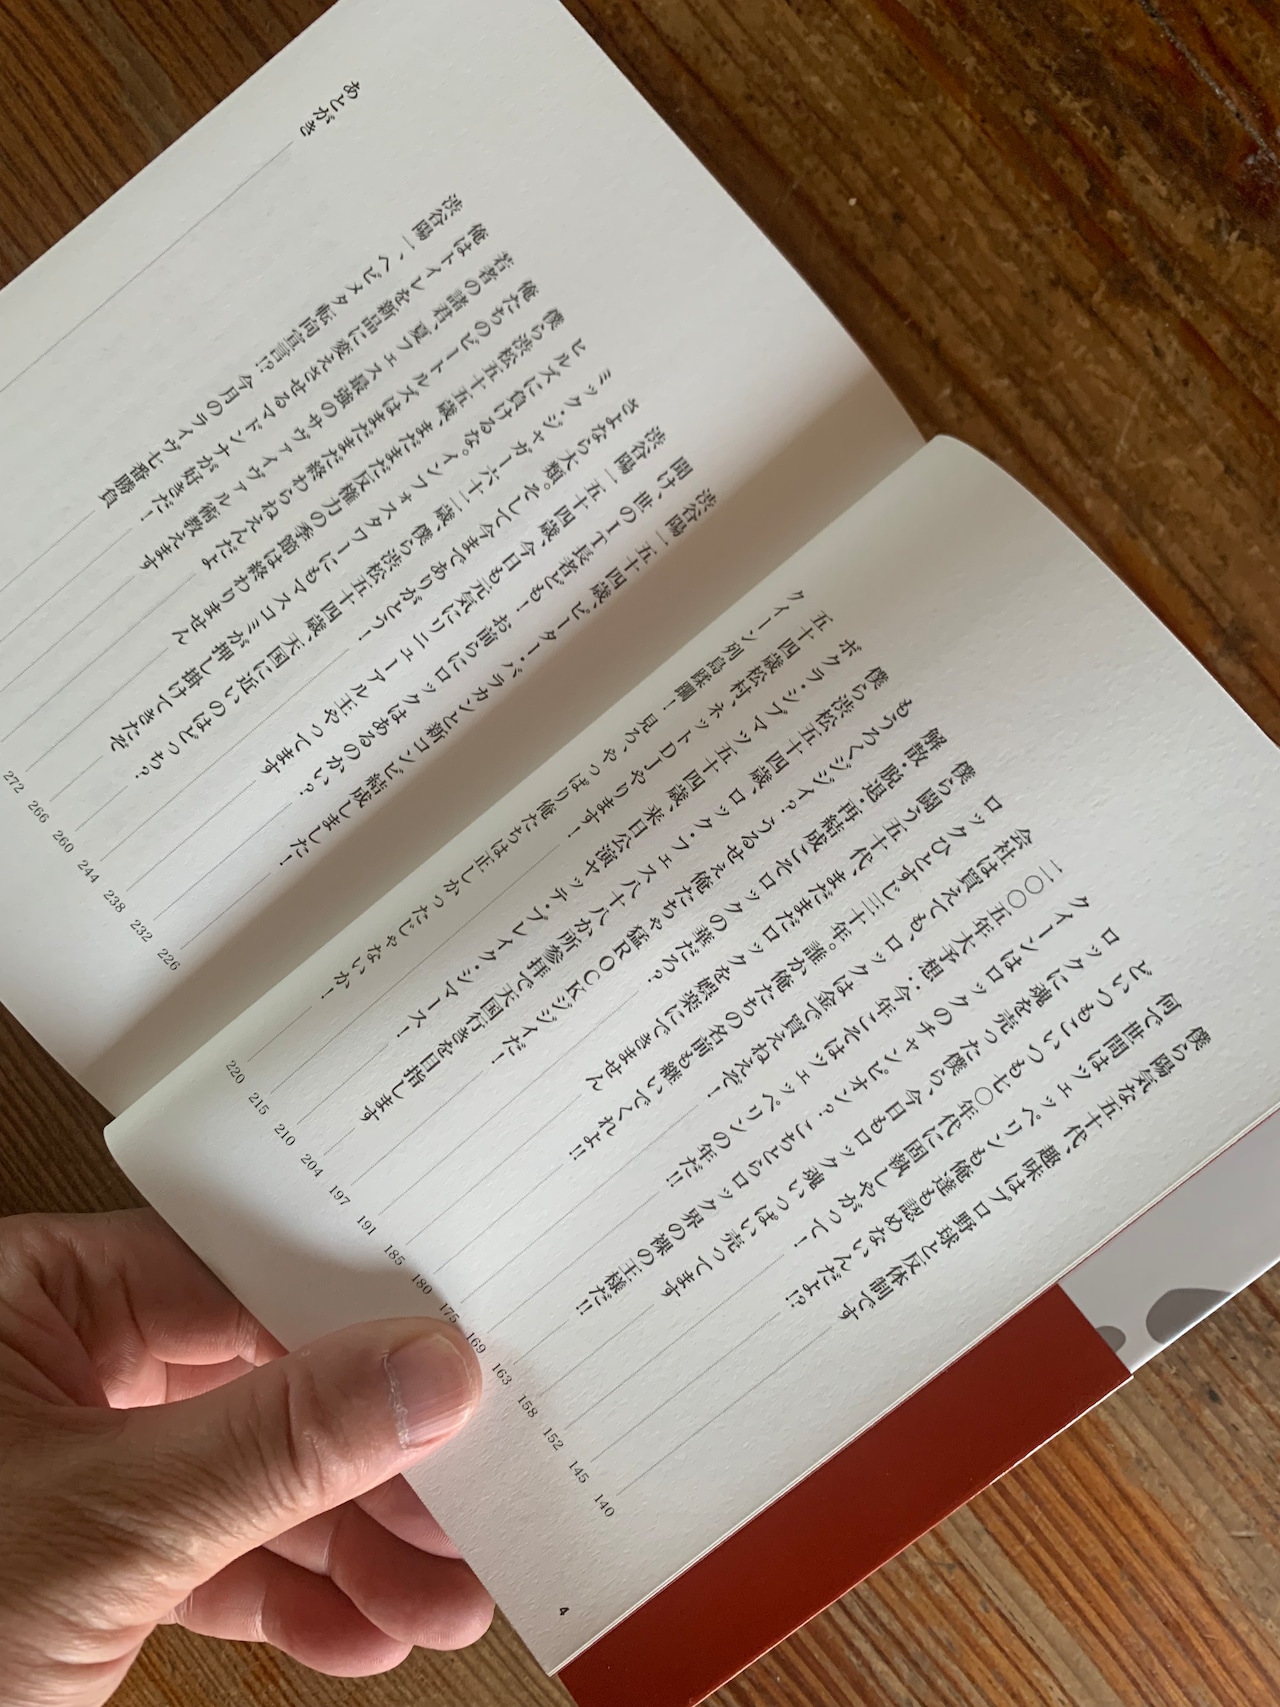 僕ら陽気な五十代、趣味はプロ野球と反体制です 140
何で世間はツェッペリンも俺達も認めないんだよ!? 145
どいつもこいつも七〇年代に固執しやがって! 152
ロックに魂を売った僕ら、今日もロック魂いっぱい売ってます 158
クイーンはロックのチャンピオン? こちとらロック界の裸の王様だ!! 163
二〇〇五年大予想:今年こそはツェッペリンの年だ!! 169
会社は買えても、ロックは金で買えねえぞ! 175
ロックひとすじ三十年。誰か俺たちの名前も継いでくれよ!! 180
僕ら闘う五十代、まだまだロックを娯楽にできません 185
解散・脱退・再結成こそロックの華だろ? 191
もうろくジジイ? うるせえ俺たちゃ猛ROCKジジイだ! 197
僕ら渋松五十四歳、ロック・フェス八十八か所参拝で天国行きを目指します 204
ボクラ・シブマツ五十四歳、来日公演ヤッテ・ブレイク・シマース! 210
五十四歳松村、ネットDJやります! 215
クイーン列島蹂躙! 見ろ、やっぱり俺たちは正しかったじゃないか! 220
4
渋谷陽一五十四歳、ピーター・バラカンと新コンビ結成しました! 226
聞け、世のIT長者ども! お前らにロックはあるのかい? 232
渋谷陽一五十四歳、今日も元気にリニューアル王やってます 238
さよなら大類。そして今までありがとう! 244
ミック・ジャガー六十二歳、僕ら渋松五十四歳、天国に近いのはどっち? 260
ヒルズに負けるな。インフォスタワーにもマスコミが押し掛けてきたぞ 266
僕ら渋松五十五歳、まだまだ反権力の季節は終わりません 272
俺たちのビートルズはまだまだ終わらねえんだよ
若者の諸君、夏フェス最強のサヴァイヴァル術教えます
俺はトイレを新品に変えさせるマドンナが好きだ!
渋谷陽一、ヘビメタ転向宣言!? 今月のライヴ七番勝負
あとがき